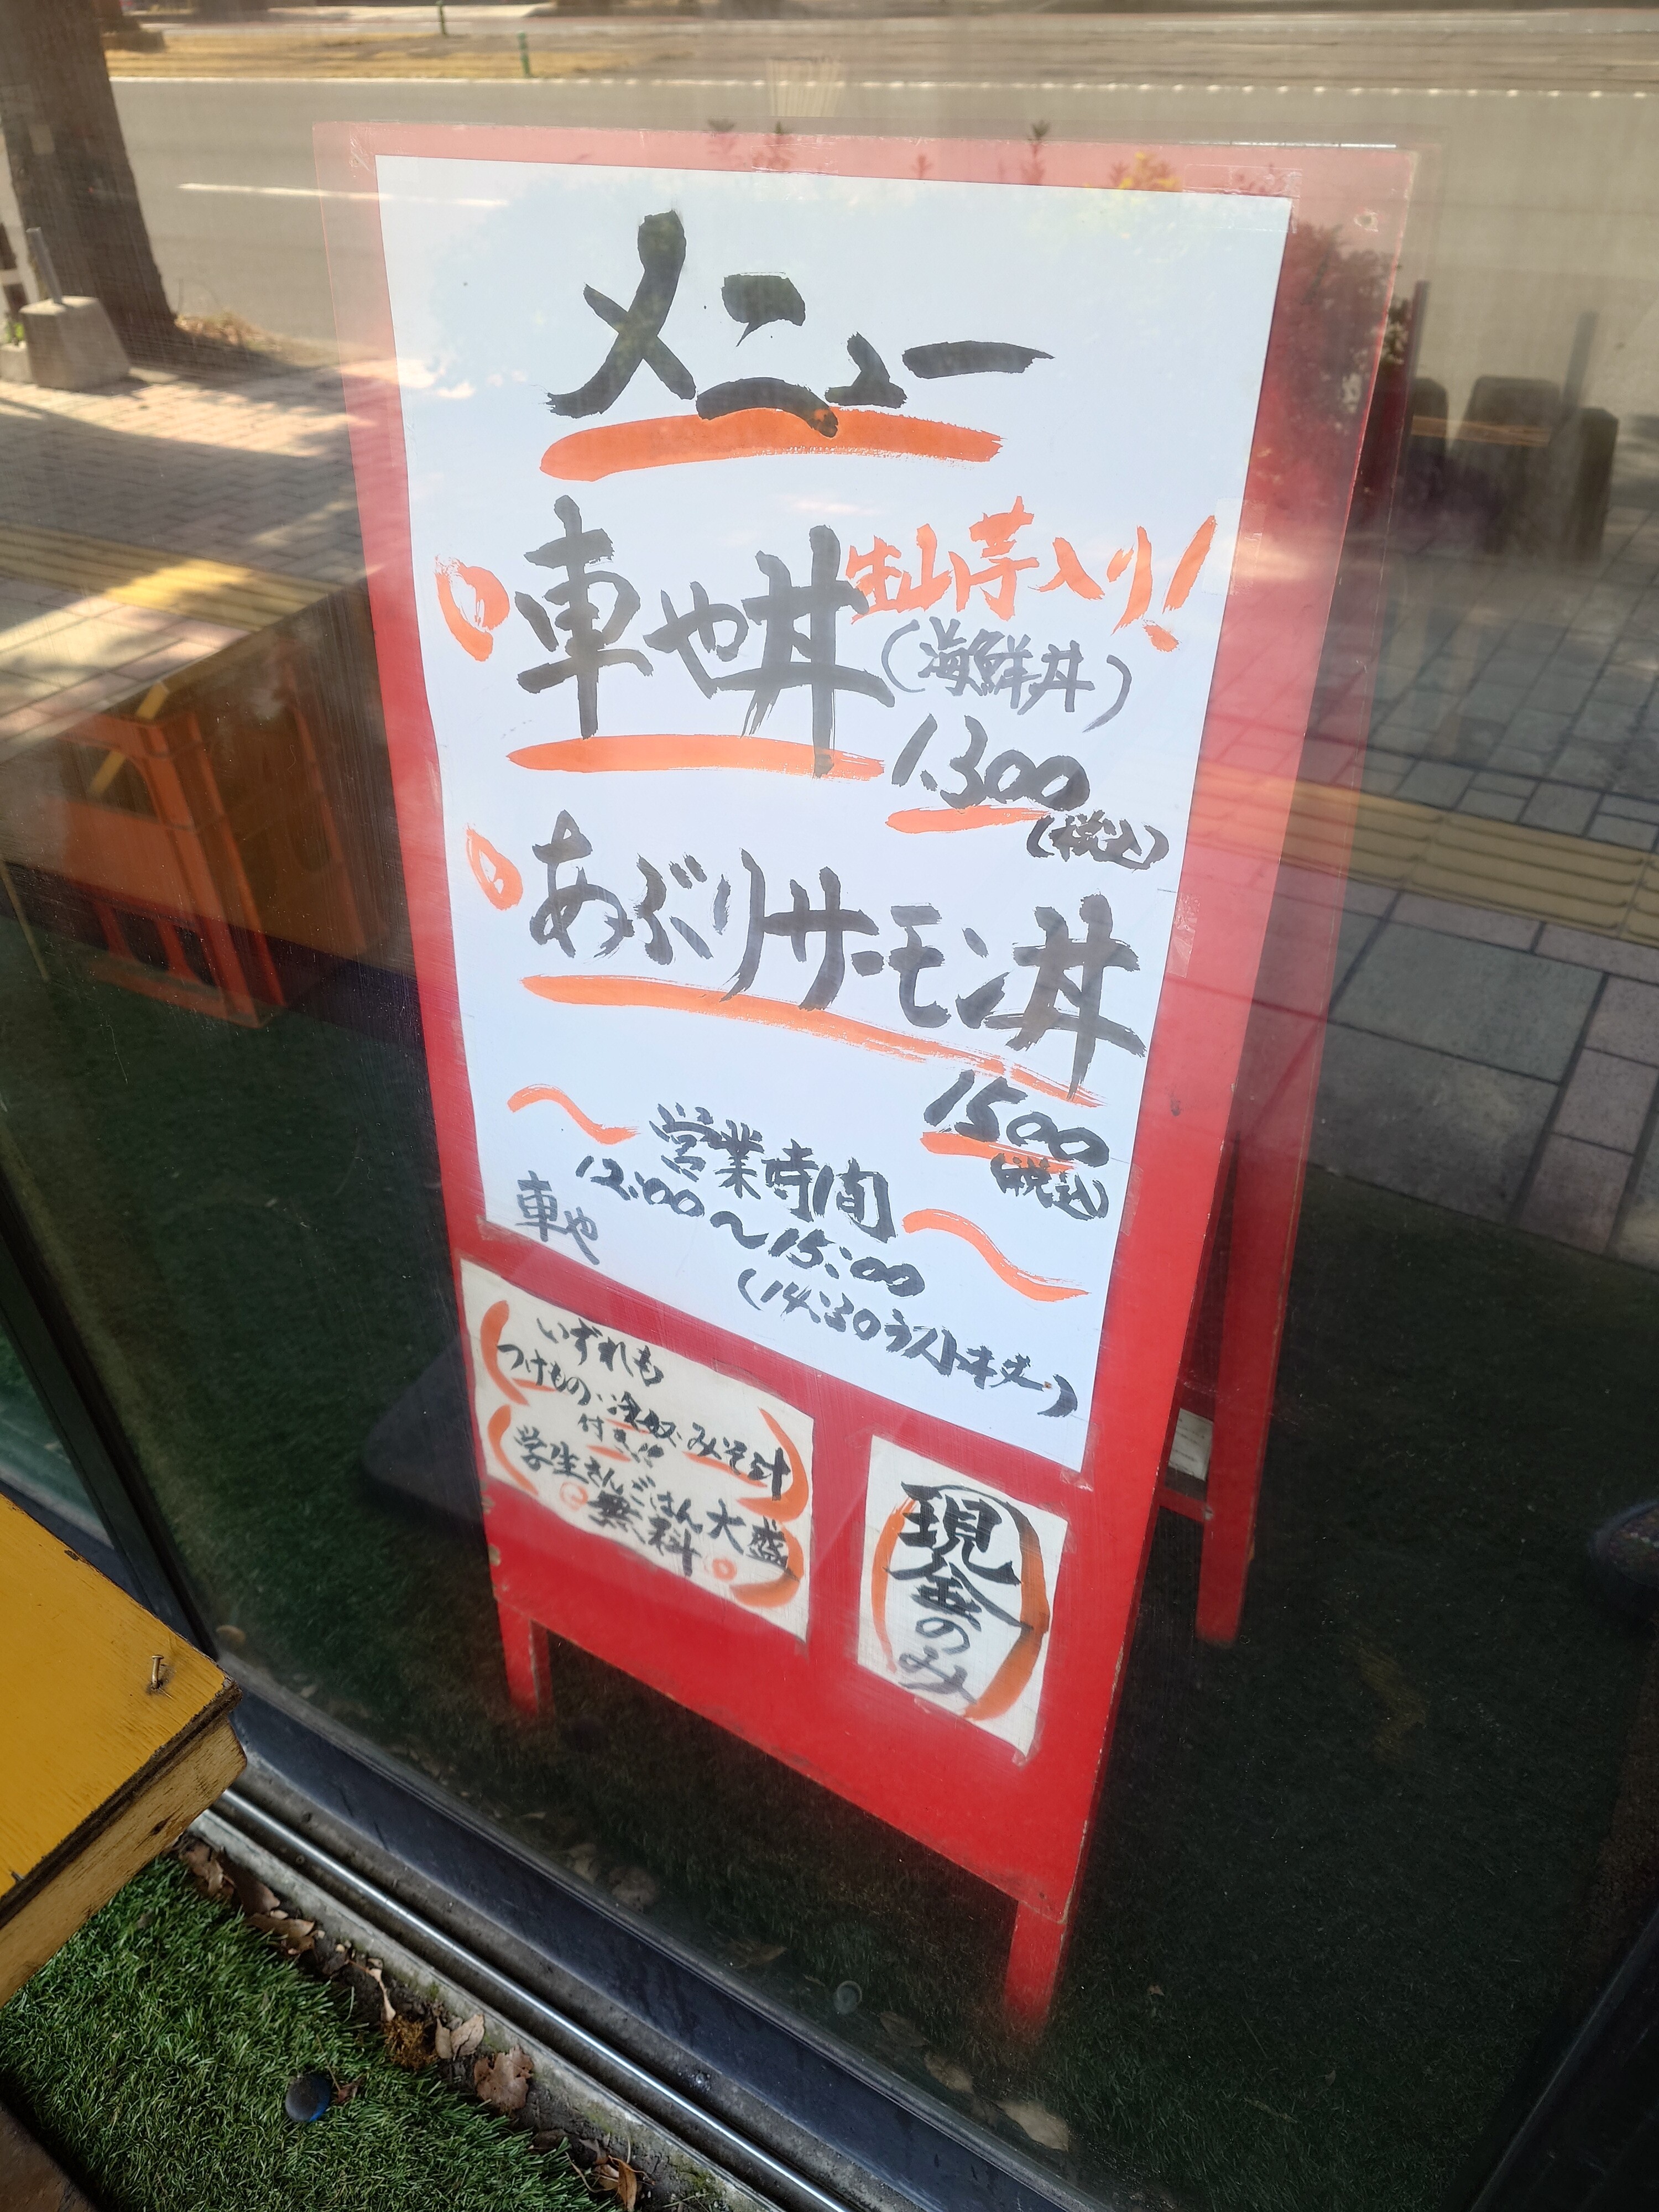 メニュー
生山芋入り!
車や丼
(海鮮丼)
1.300
(税込)
あぶりサーモン丼
1500
(税込)
〜営業時間〜
12:00〜15:00
(14:30ラストオーダー)
車や
いずれも
つけもの・冷奴・みそ汁
付き!!
学生さんごはん大盛
無料
現金のみ